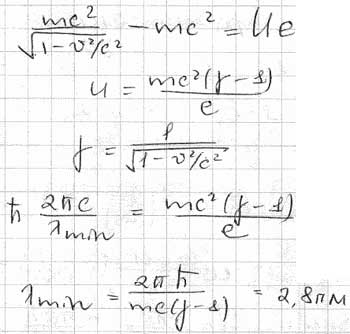 mc²/√(1-v²/c²) - mc² = Ue
U = mc²(γ-1)/e
γ = 1/√(1-v²/c²)
ħ 2πc/λmin = mc²(γ-1)/e
λmin = 2πħ/mc(γ-1) = 2,8пм